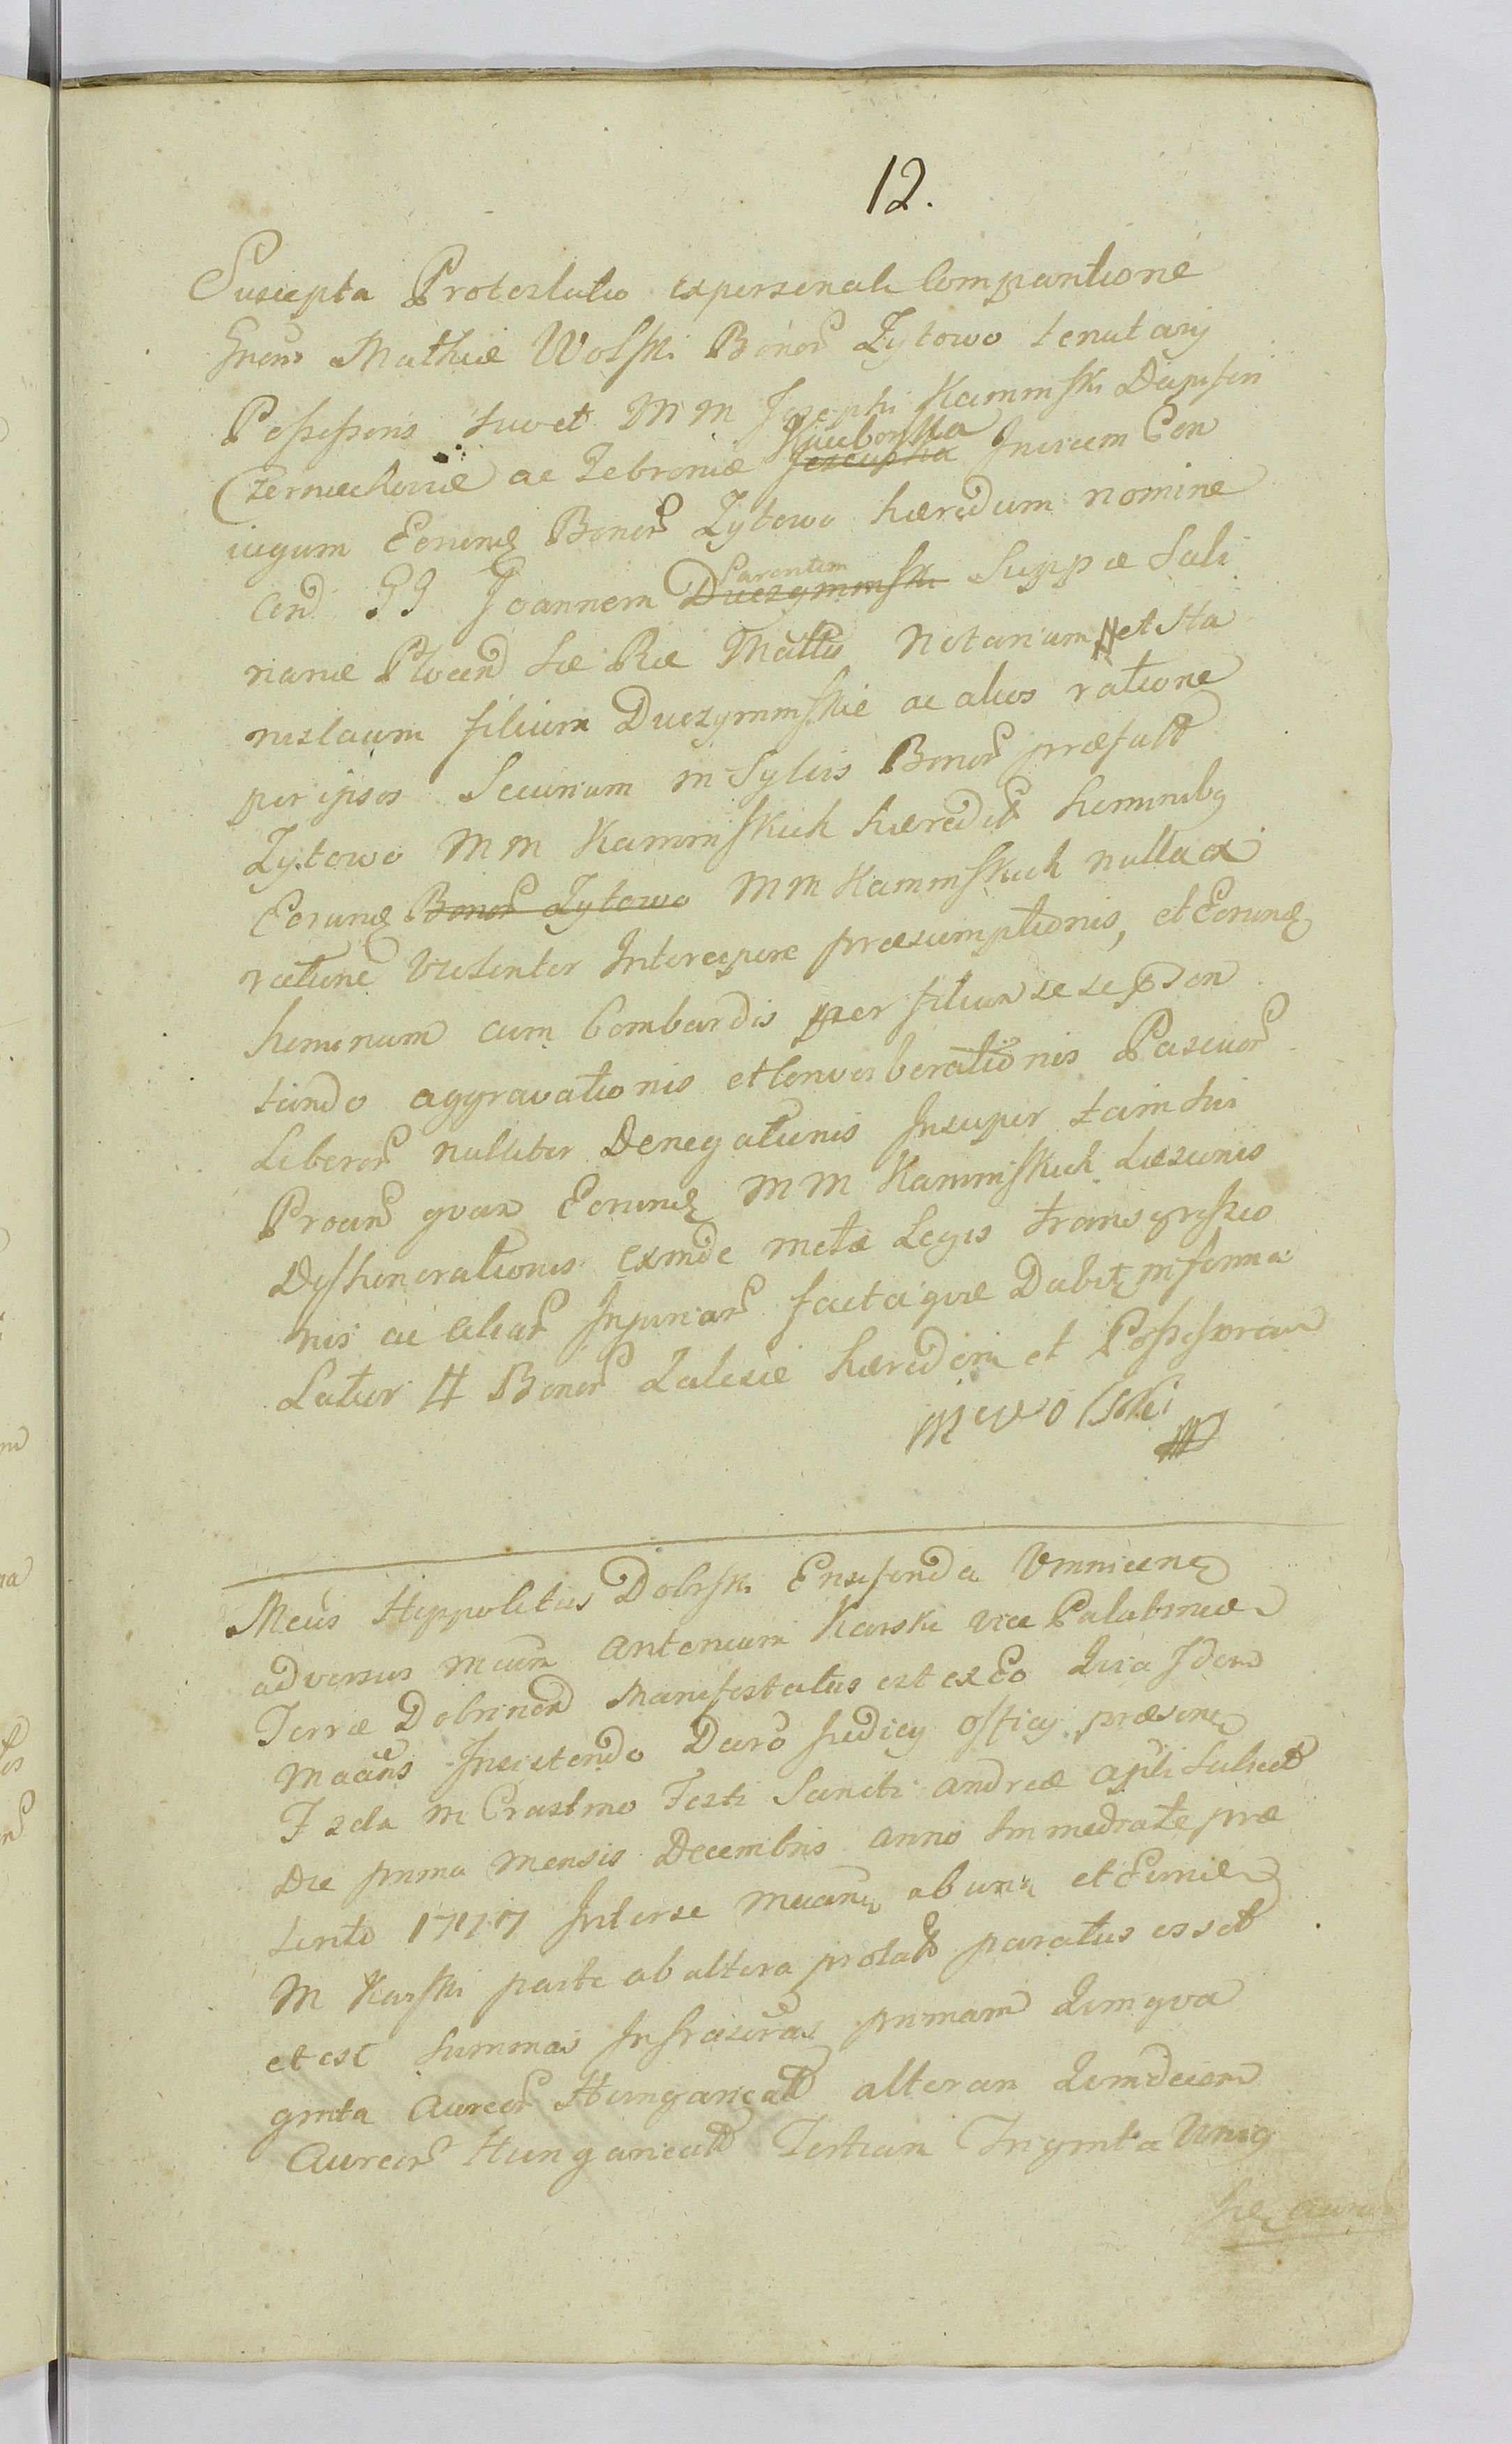 12.
Suscepta Protestatio ex personali Comparitione
Gnosi Mathiæ Wolski Bonor Zytowo tenutarij
Possessoris suo et MM Josephi Kaminski Dapiferi
Czerniechoviæ ac Febroniæ Kuczborska Invicem Con
iugum Eorumq Bonor Zytowo hæredum nomine
Con GG Joannem Parentem Suppæ Sali
nariæ Plocen Sæ Ræ Mattis Notarium et Sta
nislaum filium Duczyminskie ac alios ratione
per ipsos Securium in Sylvis Bonor præfatt
Zytowo MM Kaminskich hæredit hominibq
Eorumq Bonor Zytowo MM Kaminskich nulla ex
ratione violenter Intercepere præsumptionis, et Eorumq
hominum cum bombardis per filium se se
tando aggravationis et Converberationis Pascuor
Liberor nulliter Denegationis Insuper tam sui
Proar quam Eorumq MM Kaminskich Læsionis
Dyshonorationis exinde metæ Legis transgressio
nis ac aliar Injuriar facta quæ Dabitq informa
Latior # Bonor Zalesie hæredem et Possessorem
M Wolski
Mcus Hippolitus Dobrski Ensiferida
adversus Mcum Antonium Karski vice Palatinum
Terræ Dobrinen Manifestatus est ex Eo Quia Idem
Mcans Insistendo Decro Judicij Officij præsens
in Crastino Festi Sancti Andreæ Apli
Die prima Mensis Decembris Anno Immediate præ
terito 1777 Inter se Mcanq ab una et Eund
M Karski parte ab altera prolat paratus esset
et est Summas Infrascras primam Quinqua
ginta Aureor Hungarical alteram Quindecim
Aureor Hungarical Tertiam Triginta Uniq